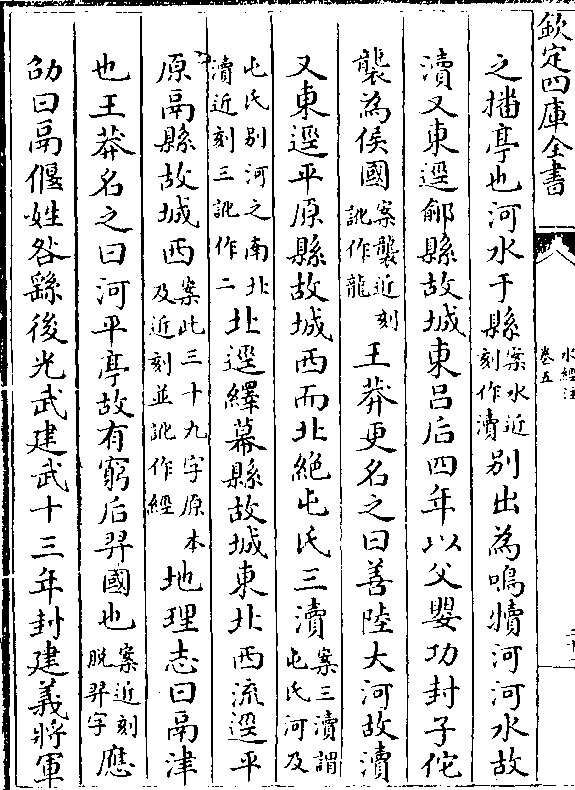 欽定四庫全書
水經注
卷五
之播亭也河水于縣案水近刻作瀆別出為鳴犢河河水故
瀆又東逕鄃縣故城東吕后四年以父嬰功封子佗
襲為侯國案襲近刻訛作龍王莽更名之曰善陸大河故瀆
又東逕平原縣故城西而北絶屯氏三瀆案三瀆謂屯氏河及
屯氏別河之南北瀆近刻三訛作二北逕繹幕縣故城東北西流逕平
原鬲縣故城西案此三十九字原本及近刻並訛作經地理志曰鬲津
也王莽名之曰河平亭故有窮后羿國也案近刻脱羿字應
劭曰鬲偃姓咎繇後光武建武十三年封建義將軍